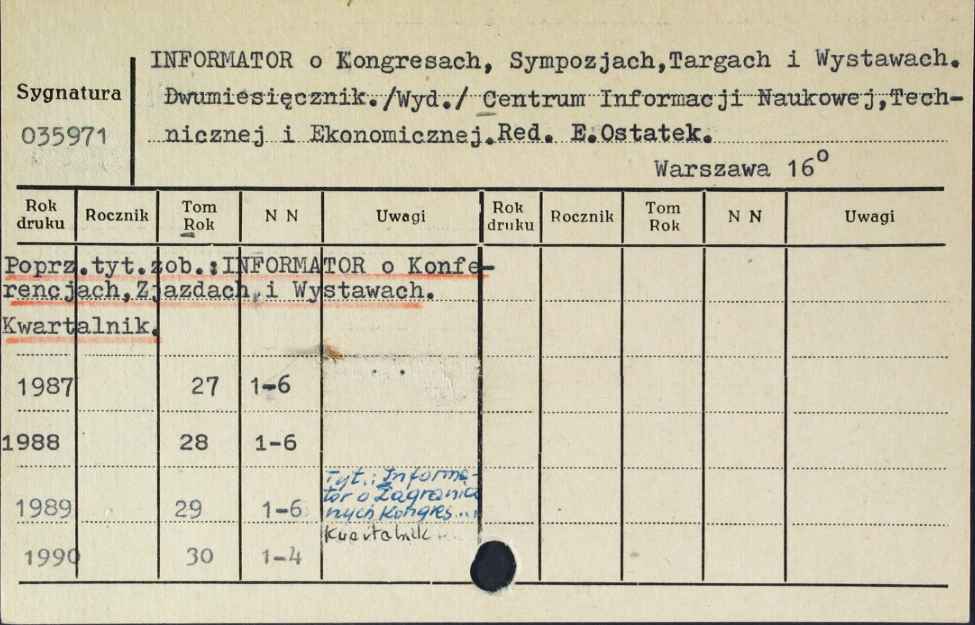 INFORMATOR o Kongresach, Sympozjach,Targach i Wystawach.
Sygnatura
Dwumiesięcznik./Wyd./ Centrum Informacji Naukowej,Tech-
035971
nicznej i Ekonomicznej.Red. E.Ostatek.
Warszawa 16°
Rok druku Rocznik Tom Rok N N Uwagi Rok druku Rocznik Tom Rok N N Uwagi
Poprz.tyt.zob.:INFORMATOR o Konfe-
rencjach,Zjazdach,i Wystawach.
Kwartalnik.
1987 27 1-6
1988 28 1-6
Tyt.: Informa-
tor o Zagranicz
nych Kongres...
1989 29 1-6
Kwartalnik
1990 30 1-4